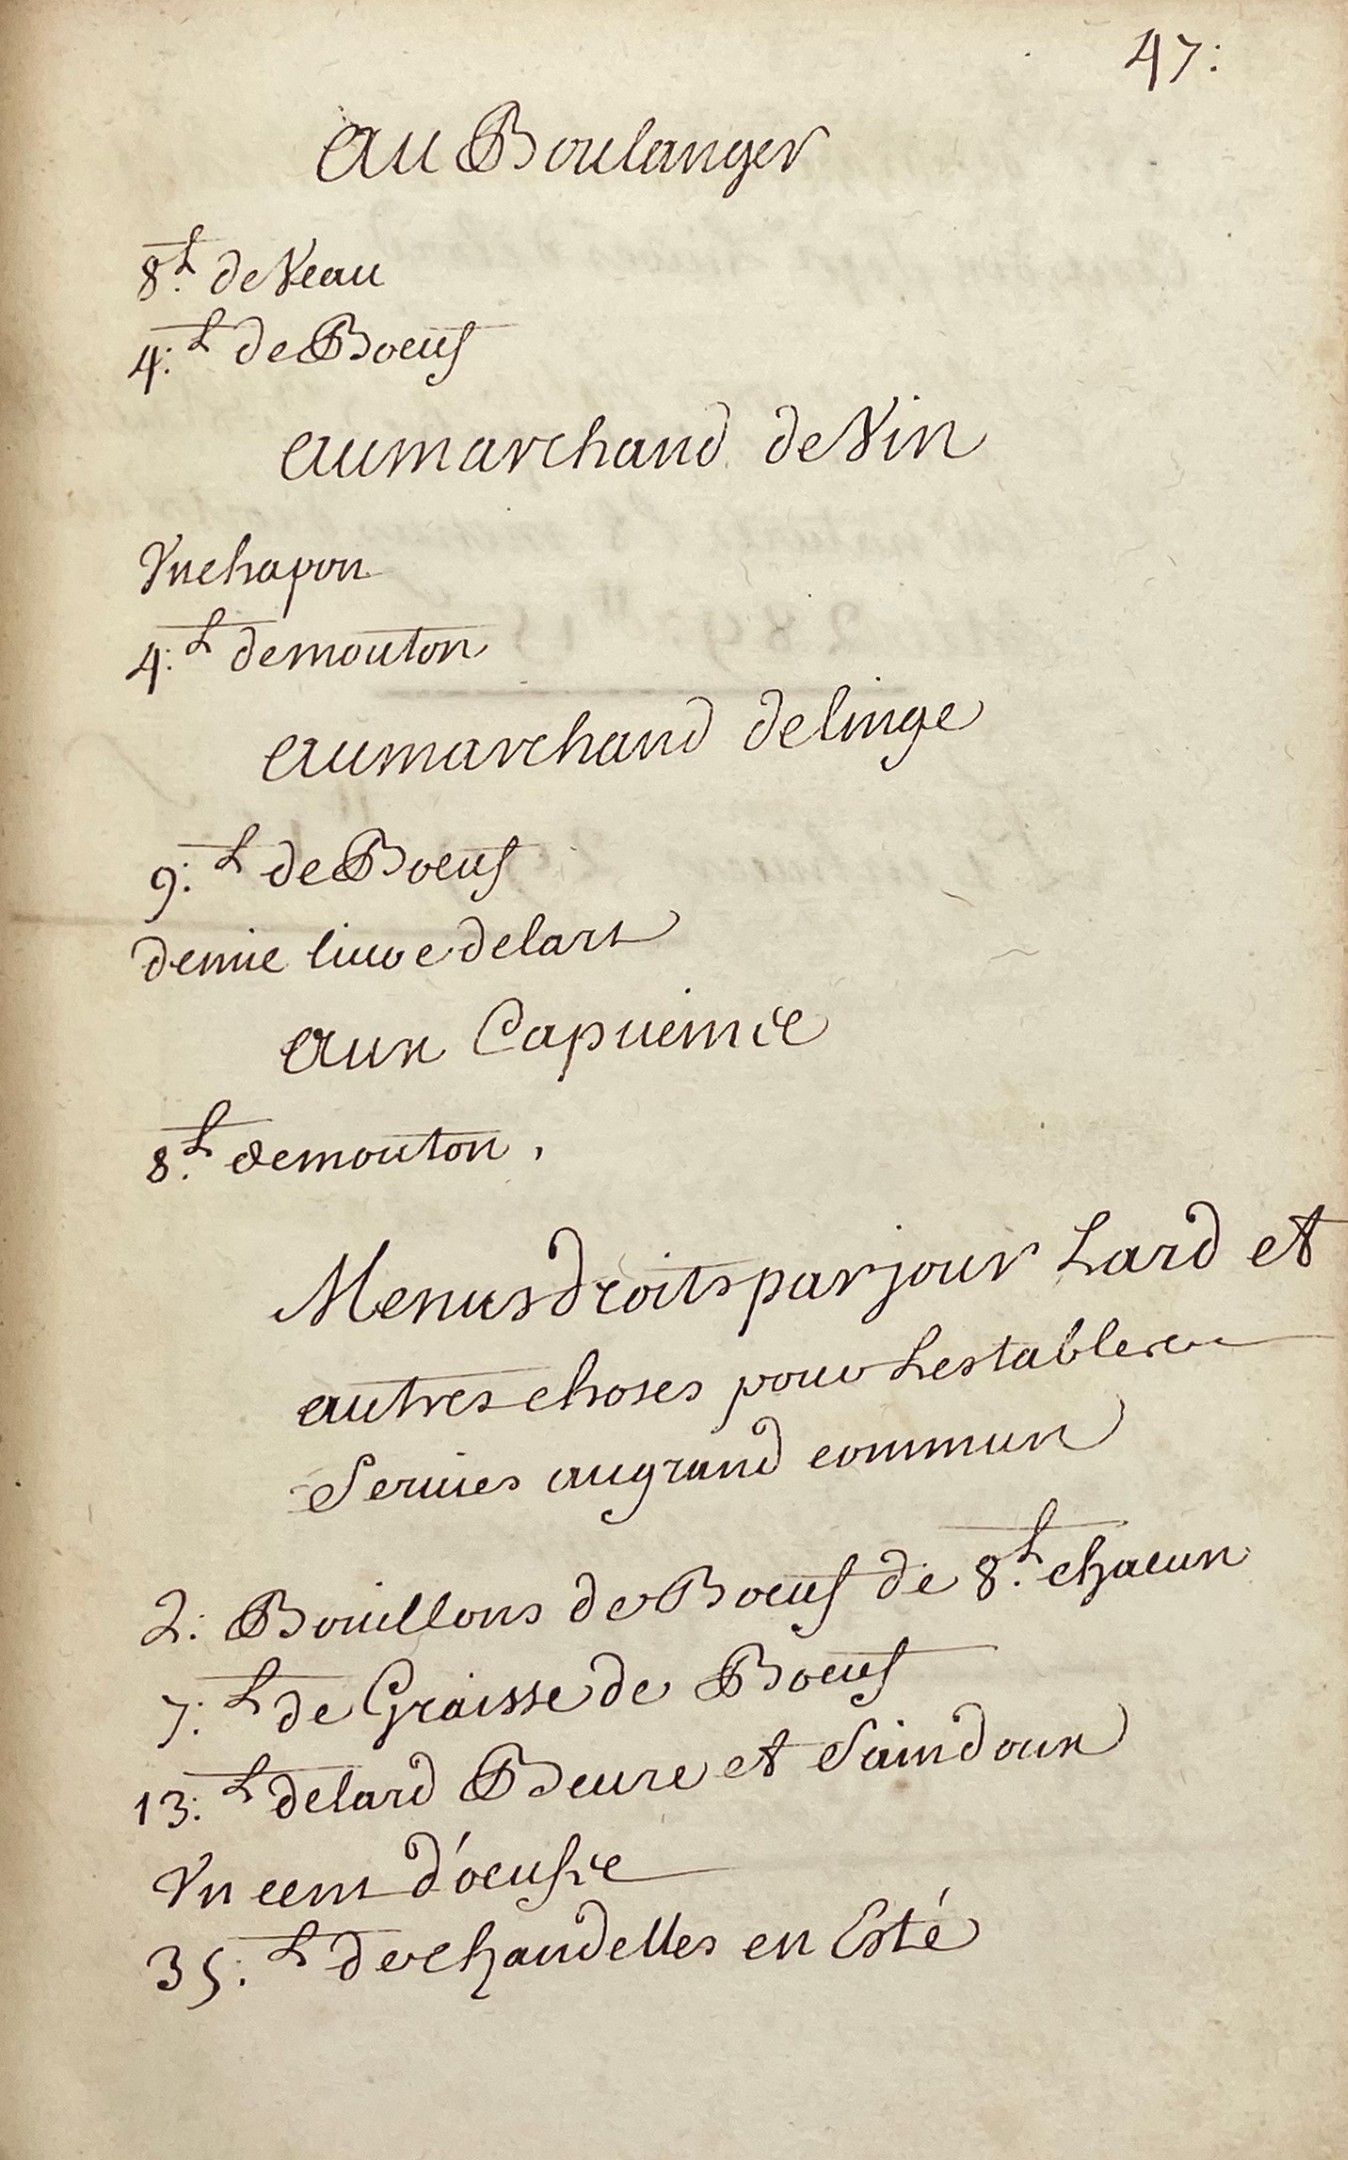 47:
au Boulanger
8.L de Veau
4:L de Boeuf
au marchand de Vin
Vn chapon
4:L de mouton
au marchand de linge
9:L de Boeuf
demie liure de lart
aux Capucins
8.L de mouton,
Menus droits par jour Lard et
autres choses pour Les tables
Seruies au grand commun
2: Bouillons de Boeuf de 8.L chacun
7:L de Graisse de Boeuf
13:L de lard Beure et Saindoux
Vn cent d'oeufs
35:L de chandelles en Esté